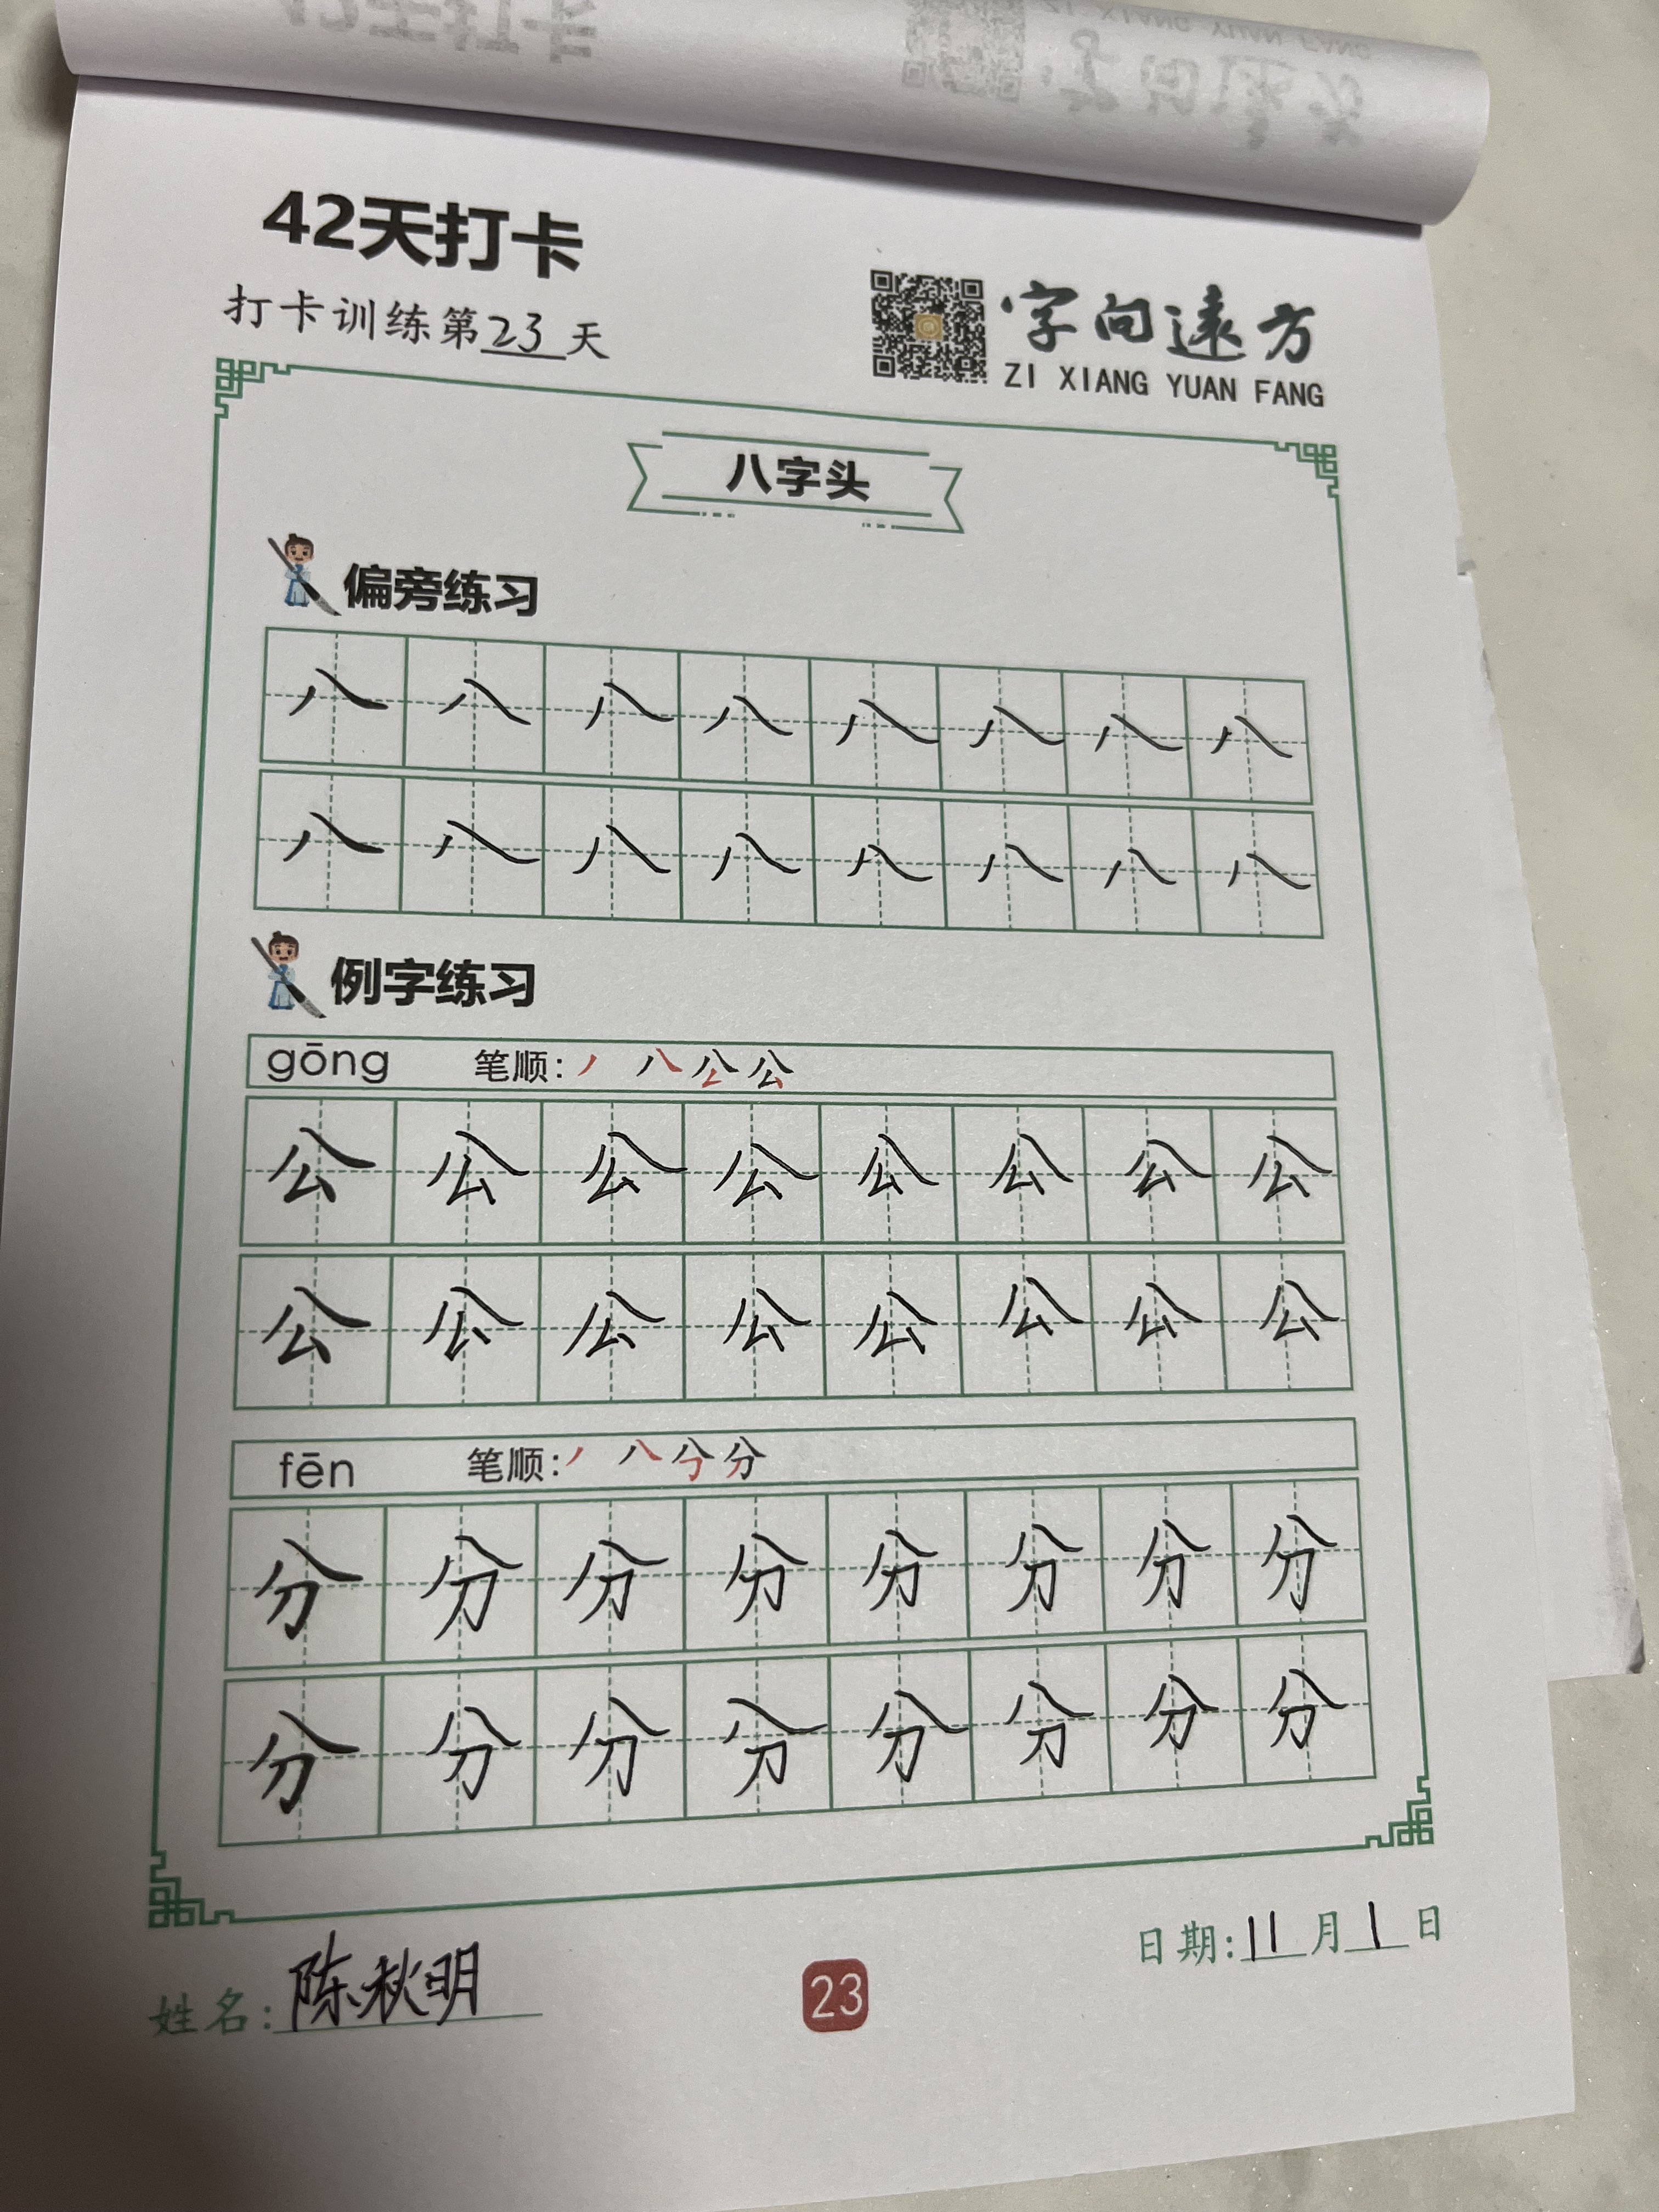 42天打卡
打卡训练第23天
字向遠方
ZI XIANG YUAN FANG
八字头
偏旁练习
八 八 八 八 八 八 八 八
八 八 八 八 八 八 八 八
例字练习
gōng 笔顺: 丿 八 公 公
公 公 公 公 公 公 公 公
公 公 公 公 公 公 公 公
fēn 笔顺: 丿 八 分 分
分 分 分 分 分 分 分 分
分 分 分 分 分 分 分 分
姓名: 陈秋明
23
日期: 11月1日